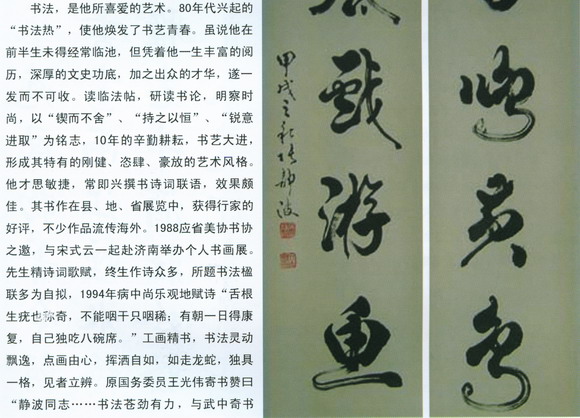 书法，是他所喜爱的艺术。80年代兴起的
“书法热”，使他焕发了书艺青春。虽说他在
前半生未得经常临池，但凭着他一生丰富的阅
历，深厚的文史功底，加之出众的才华，遂一
发而不可收。读临法帖，研读书论，明察时
尚，以“锲而不舍”、“持之以恒”、“锐意
进取”为铭志，10年的辛勤耕耘，书艺大进，
形成其特有的刚健、恣肆、豪放的艺术风格。
他才思敏捷，常即兴撰书诗词联语，效果颇
佳。其书作在县、地、省展览中，获得行家的
好评，不少作品流传海外。1988应省美协书协
之邀，与宋式云一起赴济南举办个人书画展。
先生精诗词歌赋，终生作诗众多，所题书法楹
联多为自拟，1994年病中尚乐观地赋诗“舌根
生疣也称奇，不能咽干只咽稀；有朝一日得康
复，自己独吃八碗席。”工画精书，书法灵动
飘逸，点画由心，挥洒自如，如走龙蛇，独具
一格，见者立辨。原国务委员王光伟寄书赞曰
“静波同志……书法苍劲有力，与武中奇书
鸣黄鸟
戏游鱼
甲戌之秋张静波